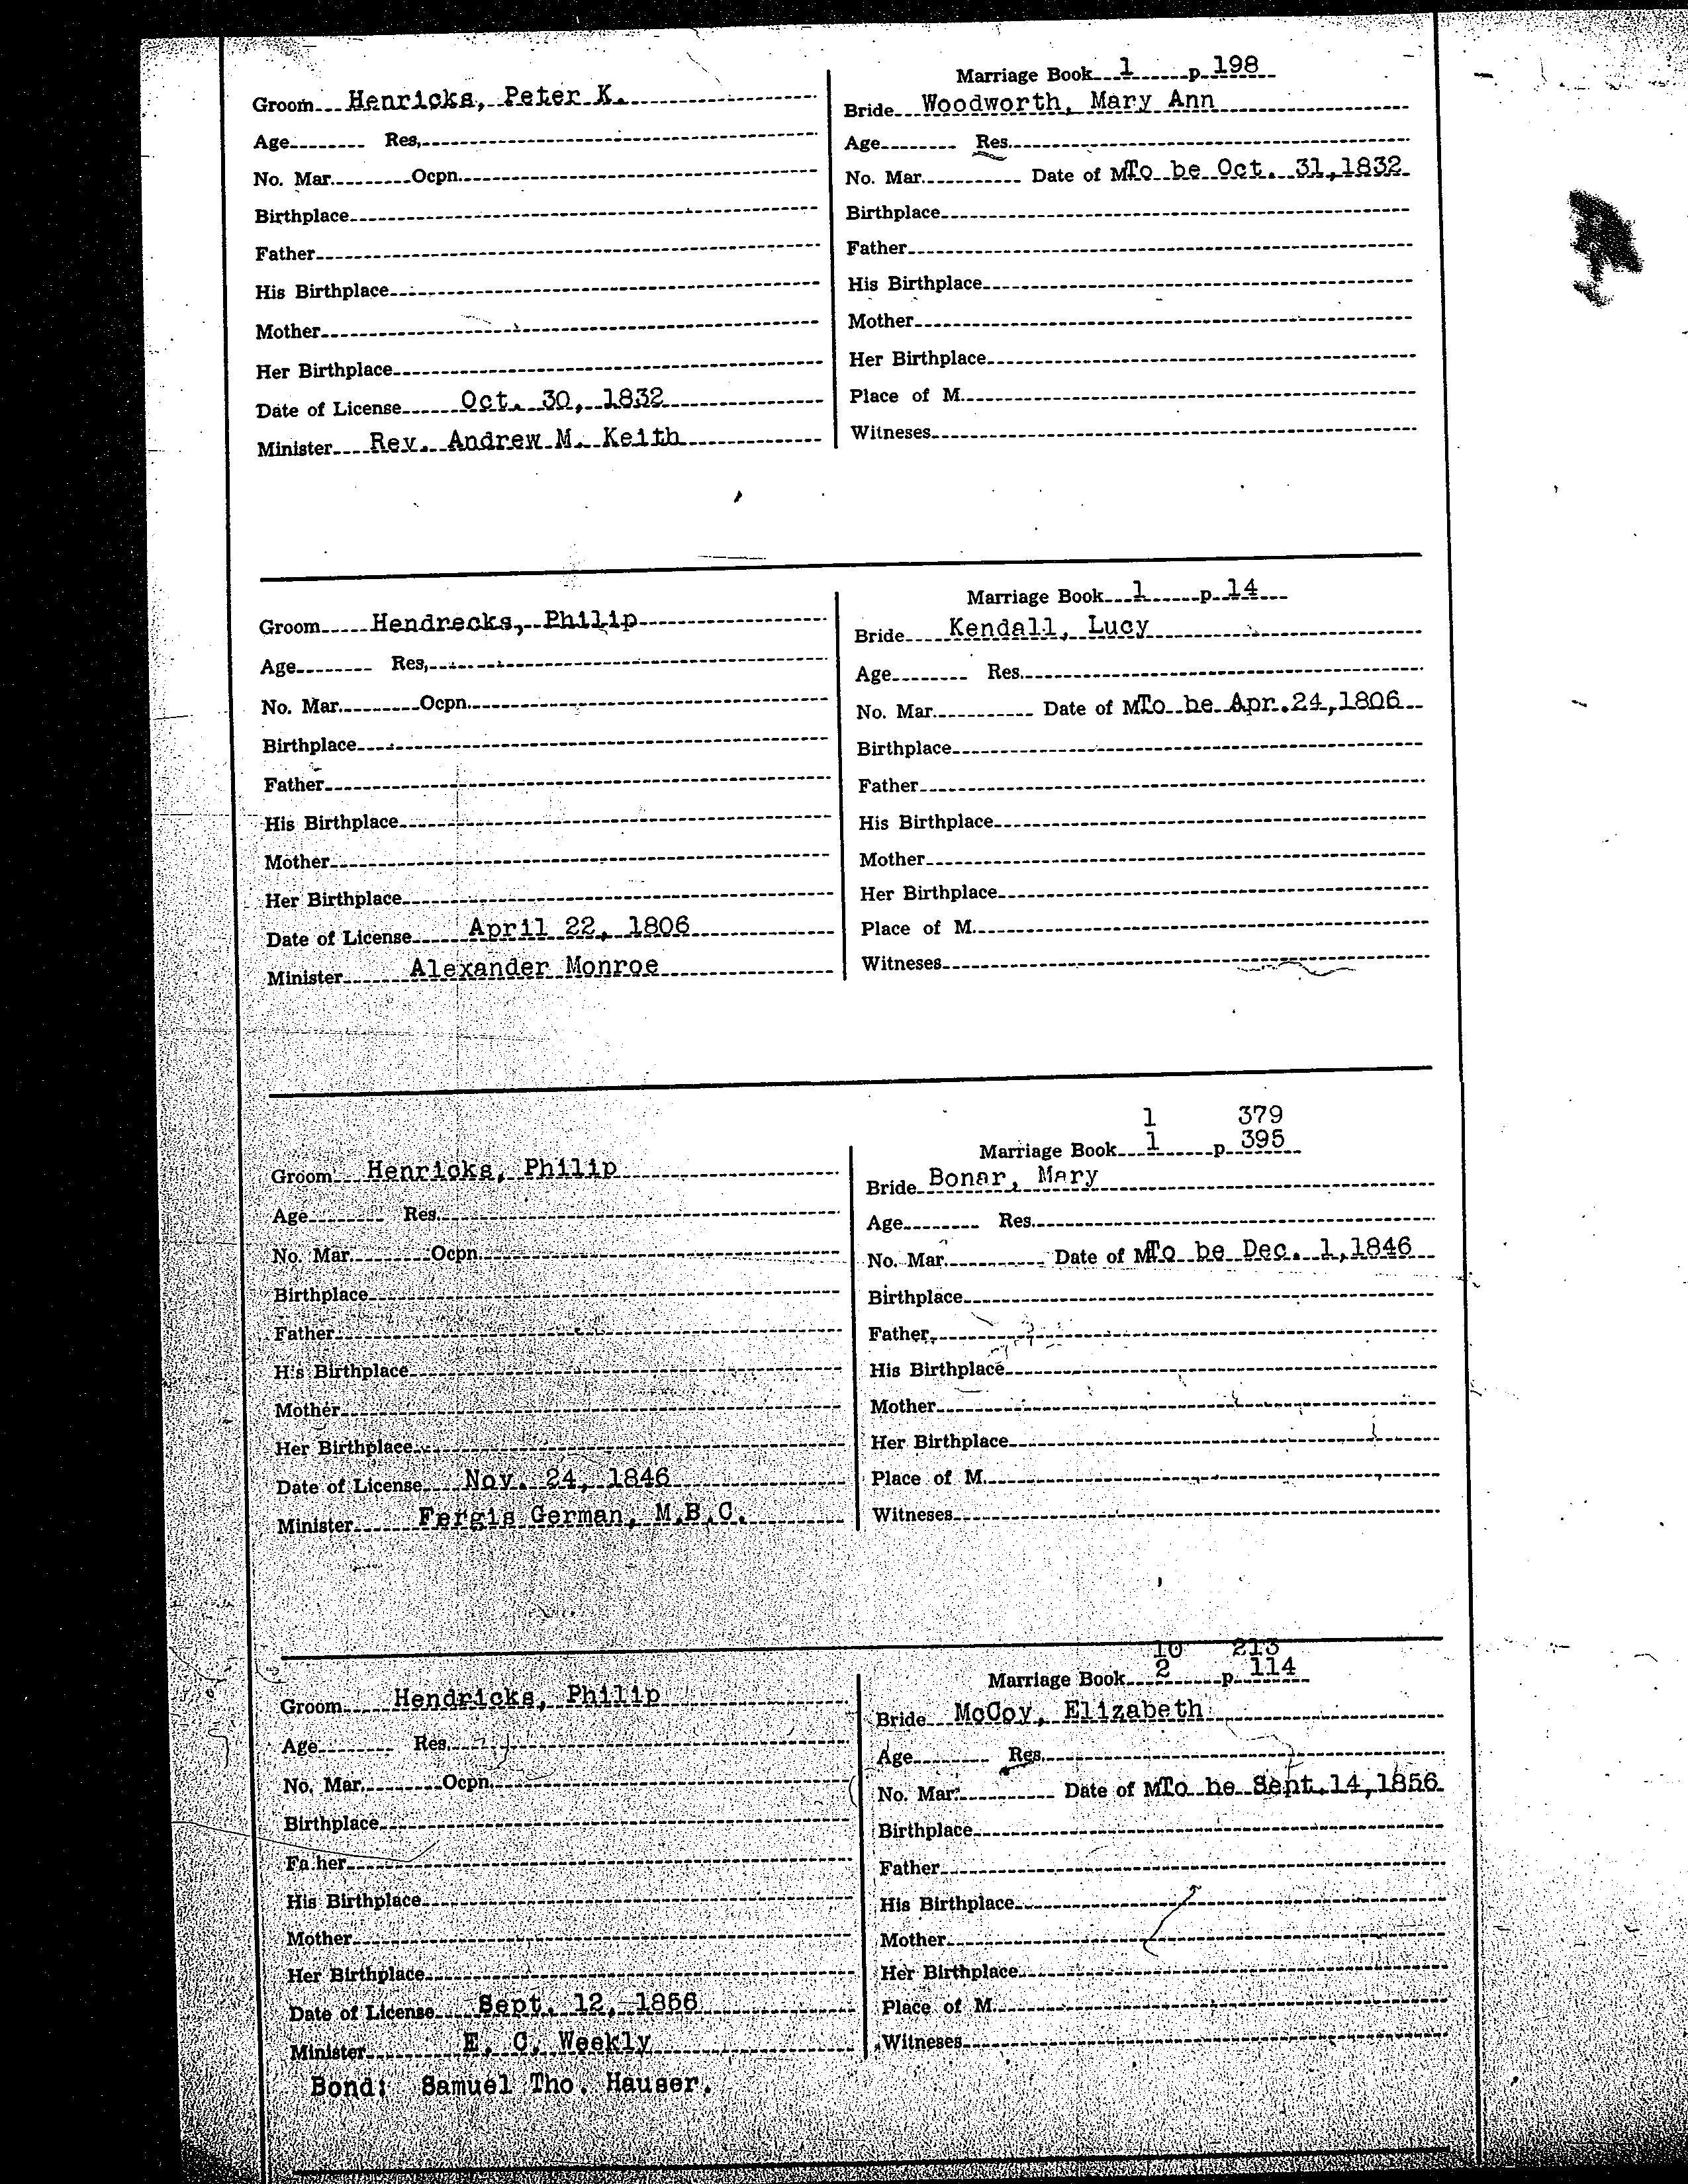 Marriage Book 1 p. 198
Groom Henricks, Peter K.
Bride Woodworth, Mary Ann
Age Res.
Age Res.
No. Mar. Ocpn.
No. Mar. Date of M To be Oct. 31,1832
Birthplace
Birthplace
Father
Father
His Birthplace
His Birthplace
Mother
Mother
Her Birthplace
Her Birthplace
Date of License Oct. 30, 1832
Place of M.
Minister Rev. Andrew M. Keith
Witneses
Marriage Book 1 p. 14
Groom Hendrecks, Philip
Bride Kendall, Lucy
Age Res,
Age Res.
No. Mar. Ocpn.
No. Mar. Date of M To be Apr.24,1806
Birthplace
Birthplace
Father
Father
His Birthplace
His Birthplace
Mother
Mother
Her Birthplace
Her Birthplace
Date of License April 22, 1806
Place of M.
Minister Alexander Monroe
Witneses
1 379
Marriage Book 1 p. 395
Groom Henricks, Philip
Bride Bonar, Mary
Age Res.
Age Res.
No. Mar. Ocpn.
No. Mar. Date of M To be Dec. 1,1846
Birthplace
Birthplace
Father
Father
His Birthplace
His Birthplace
Mother
Mother
Her Birthplace
Her Birthplace
Date of License Nov. 24, 1846
Place of M.
Minister Fergis German, M.B.C.
Witneses
10 213
Marriage Book 2 p. 114
Groom Hendricks, Philip
Bride McCoy, Elizabeth
Age Res.
Age Res.
No. Mar. Ocpn.
No. Mar. Date of M To be Sept.14,1856
Birthplace
Birthplace
Father
Father
His Birthplace
His Birthplace
Mother
Mother
Her Birthplace
Her Birthplace
Date of License Sept. 12, 1856
Place of M.
Minister E. C. Weekly
Witneses
Bond: Samuel Tho. Hauser.